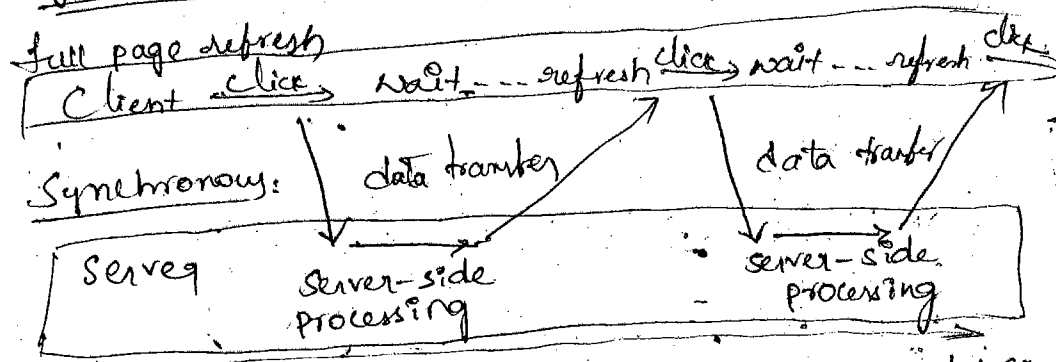 full page refresh
Client click wait.... refresh click wait ... refresh click
Synchronous: data transfer data tranfer
Server server-side server-side
processing processing